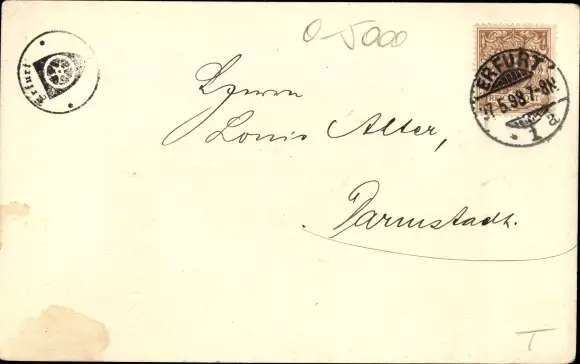 0-5000
Erfurt
ERFURT
17.5.98.7-8N.
* 1 a
Herrn
Louis Alter,
Darmstadt.
T